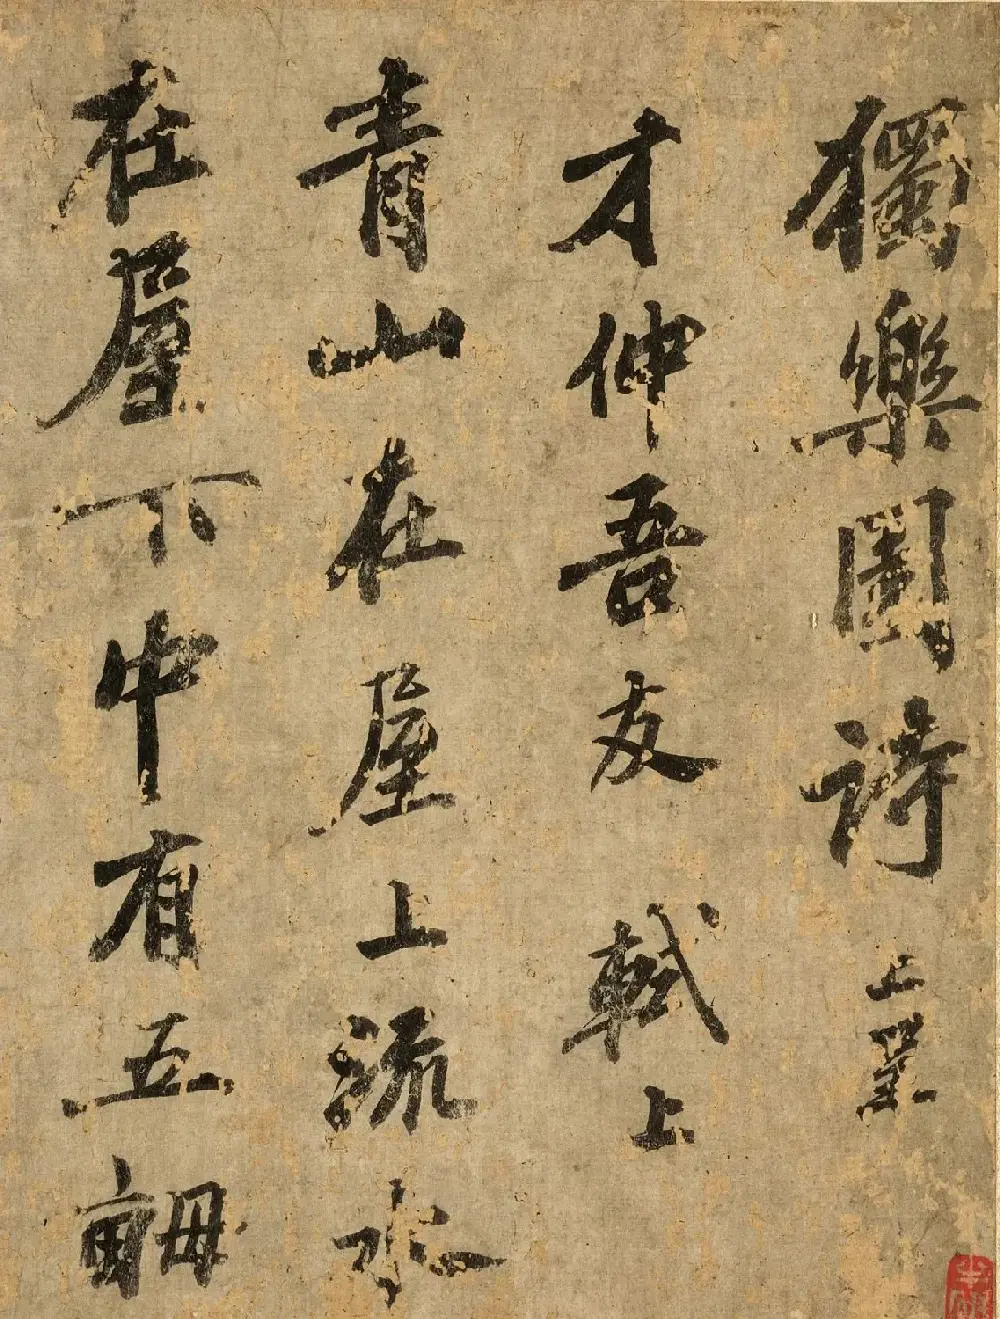 獨樂園詩上呈
才仲吾友軾上
青山在屋上流水
在屋下中有五畮